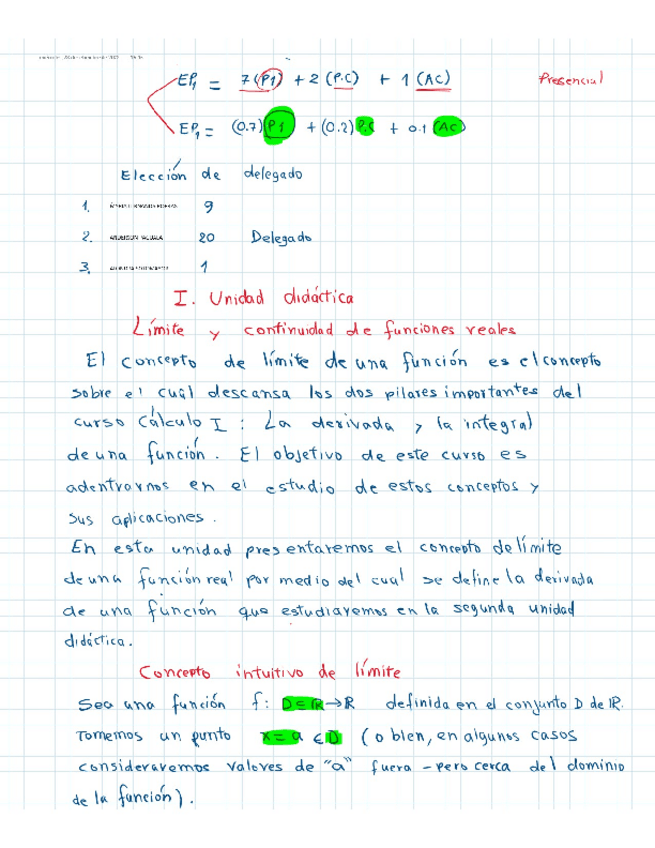 EP1 = 7(P1) + 2(P.C) + 1(AC) Presencial
EP1 = (0.7)(P1) + (0.2)P.C + 0.1(AC)
Elección de delegado
1. 9
2. ANDERSON 20 Delegado
3. 1
I. Unidad didáctica
Límite y continuidad de funciones reales
El concepto de límite de una función es el concepto
sobre el cual descansa los dos pilares importantes del
curso Cálculo I : La derivada y la integral
de una función. El objetivo de este curso es
adentrarnos en el estudio de estos conceptos y
sus aplicaciones.
En esta unidad presentaremos el concepto de límite
de una función real por medio del cual se define la derivada
de una función que estudiaremos en la segunda unidad
didáctica.
Concepto intuitivo de límite
Sea una función f: D⊆ℝ→ℝ definida en el conjunto D de ℝ.
Tomemos un punto x=a ∈ D (o bien, en algunos casos
consideraremos valores de "a" fuera - pero cerca del dominio
de la función).